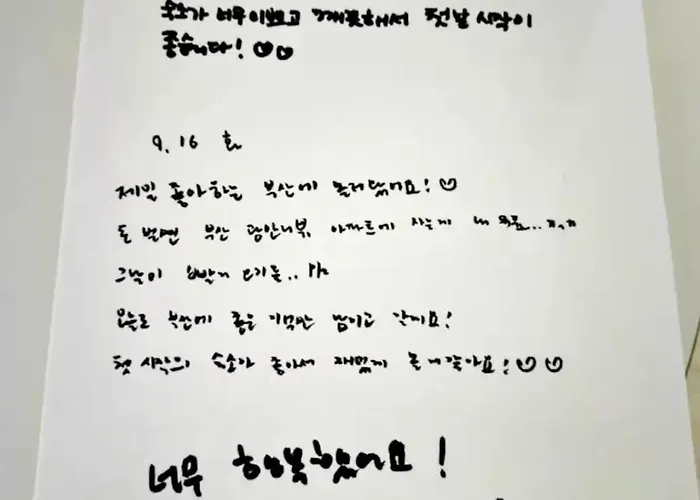 숙소가 너무 이쁘고 깨끗해서 첫날 시작이
좋습니다! ♡♡
9. 16 화
제일 좋아하는 부산에 놀러왔어요! ♡
돈 벌면 부산 광안리뷰 아파트에 사는게 내 목표..ㅠ.ㅠ
그날이 빨리 오기를..
오늘도 부산에 좋은 기억만 남기고 갈게요!
첫 시작의 숙소가 좋아서 재밌게 놀거같아요! ♡♡
너무 행복했어요!